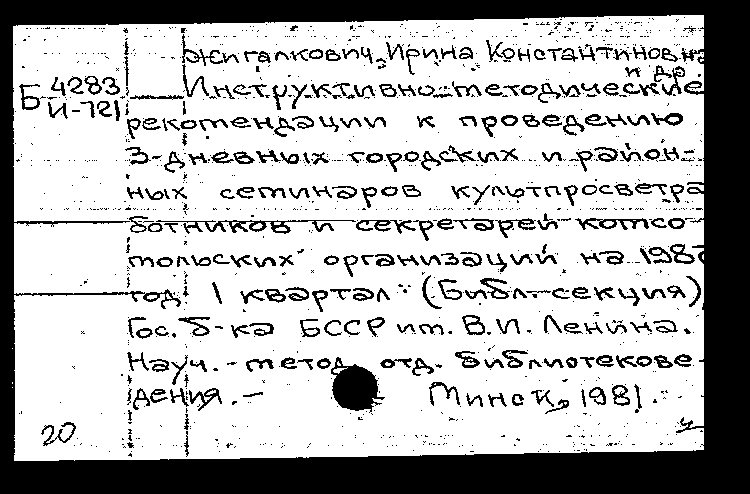 Жигалкович, Ирина Константиновна
и др.
Б 4283
И-721
Инструктивно-методические
рекомендации к проведению
3-дневных городских и район-
ных семинаров культпросветра
ботников и секретарей комсо-
мольских организаций на 198
год. I квартал: (Библ.-секция)
Гос. б-ка БССР им. В.И. Ленина.
Науч.-метод. отд. библиотекове-
дения. —
Минск, 1981.
20